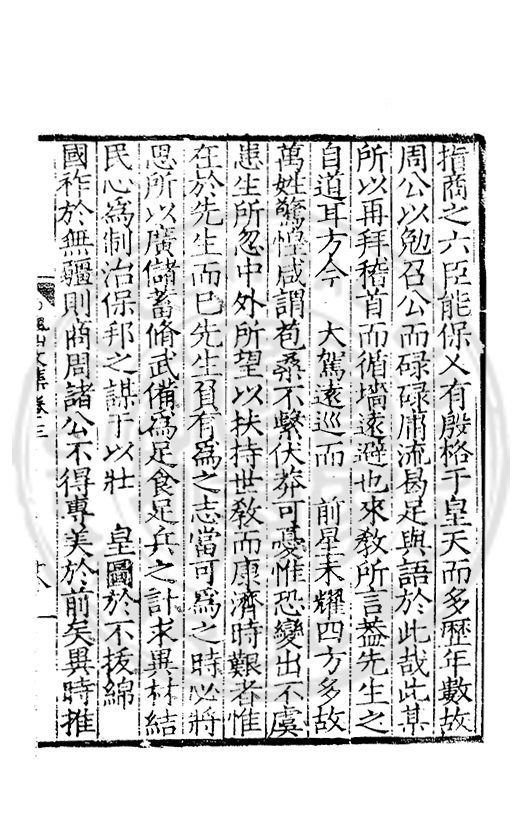 指商之六臣能保乂有殷格于皇天而多歷年數故
周公以勉召公而碌碌庸流曷足與語於此哉此某
所以再拜稽首而循墻遠避也來教所言葢先生之
自道耳方今　大駕遠巡而　前星未耀四方多故
萬姓驚惶咸謂苞桑不繫伏莽可憂惟恐變出不虞
患生所忽中外所望以扶持世教而康濟時艱者惟
在於先生而已先生負有爲之志當可爲之時必將
思所以廣儲蓄脩武備爲足食足兵之計求異材結
民心爲制治保邦之謀于以壯　皇圖於不拔綿
國祚於無疆則商周諸公不得專美於前矣異時推
山文集卷三